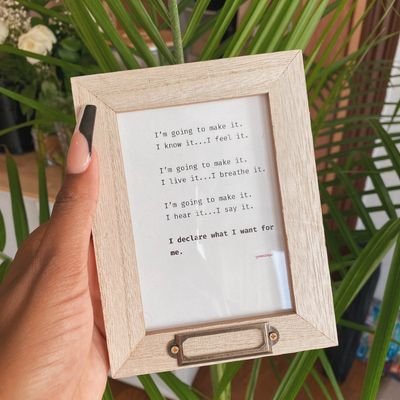 I'm going to make it.
I know it...I feel it.
I'm going to make it.
I live it...I breathe it.
I'm going to make it.
I hear it...I say it.
I declare what I want for
me.